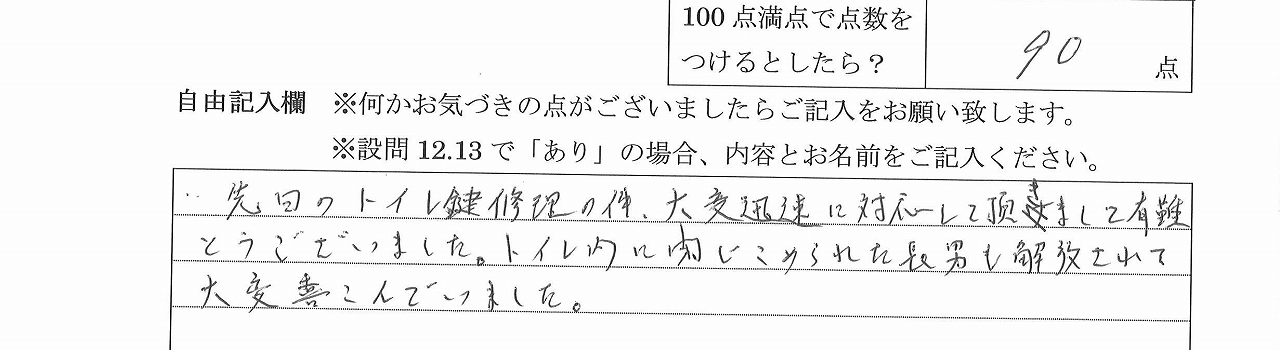 100点満点で点数を
つけるとしたら？
90 点
自由記入欄 ※何かお気づきの点がございましたらご記入をお願い致します。
※設問12.13で「あり」の場合、内容とお名前をご記入ください。
先日のトイレ鍵修理の件、大変迅速に対応して頂きまして有難
とうございました。トイレ内に閉じこめられた長男も解放されて
大変喜こんでいました。